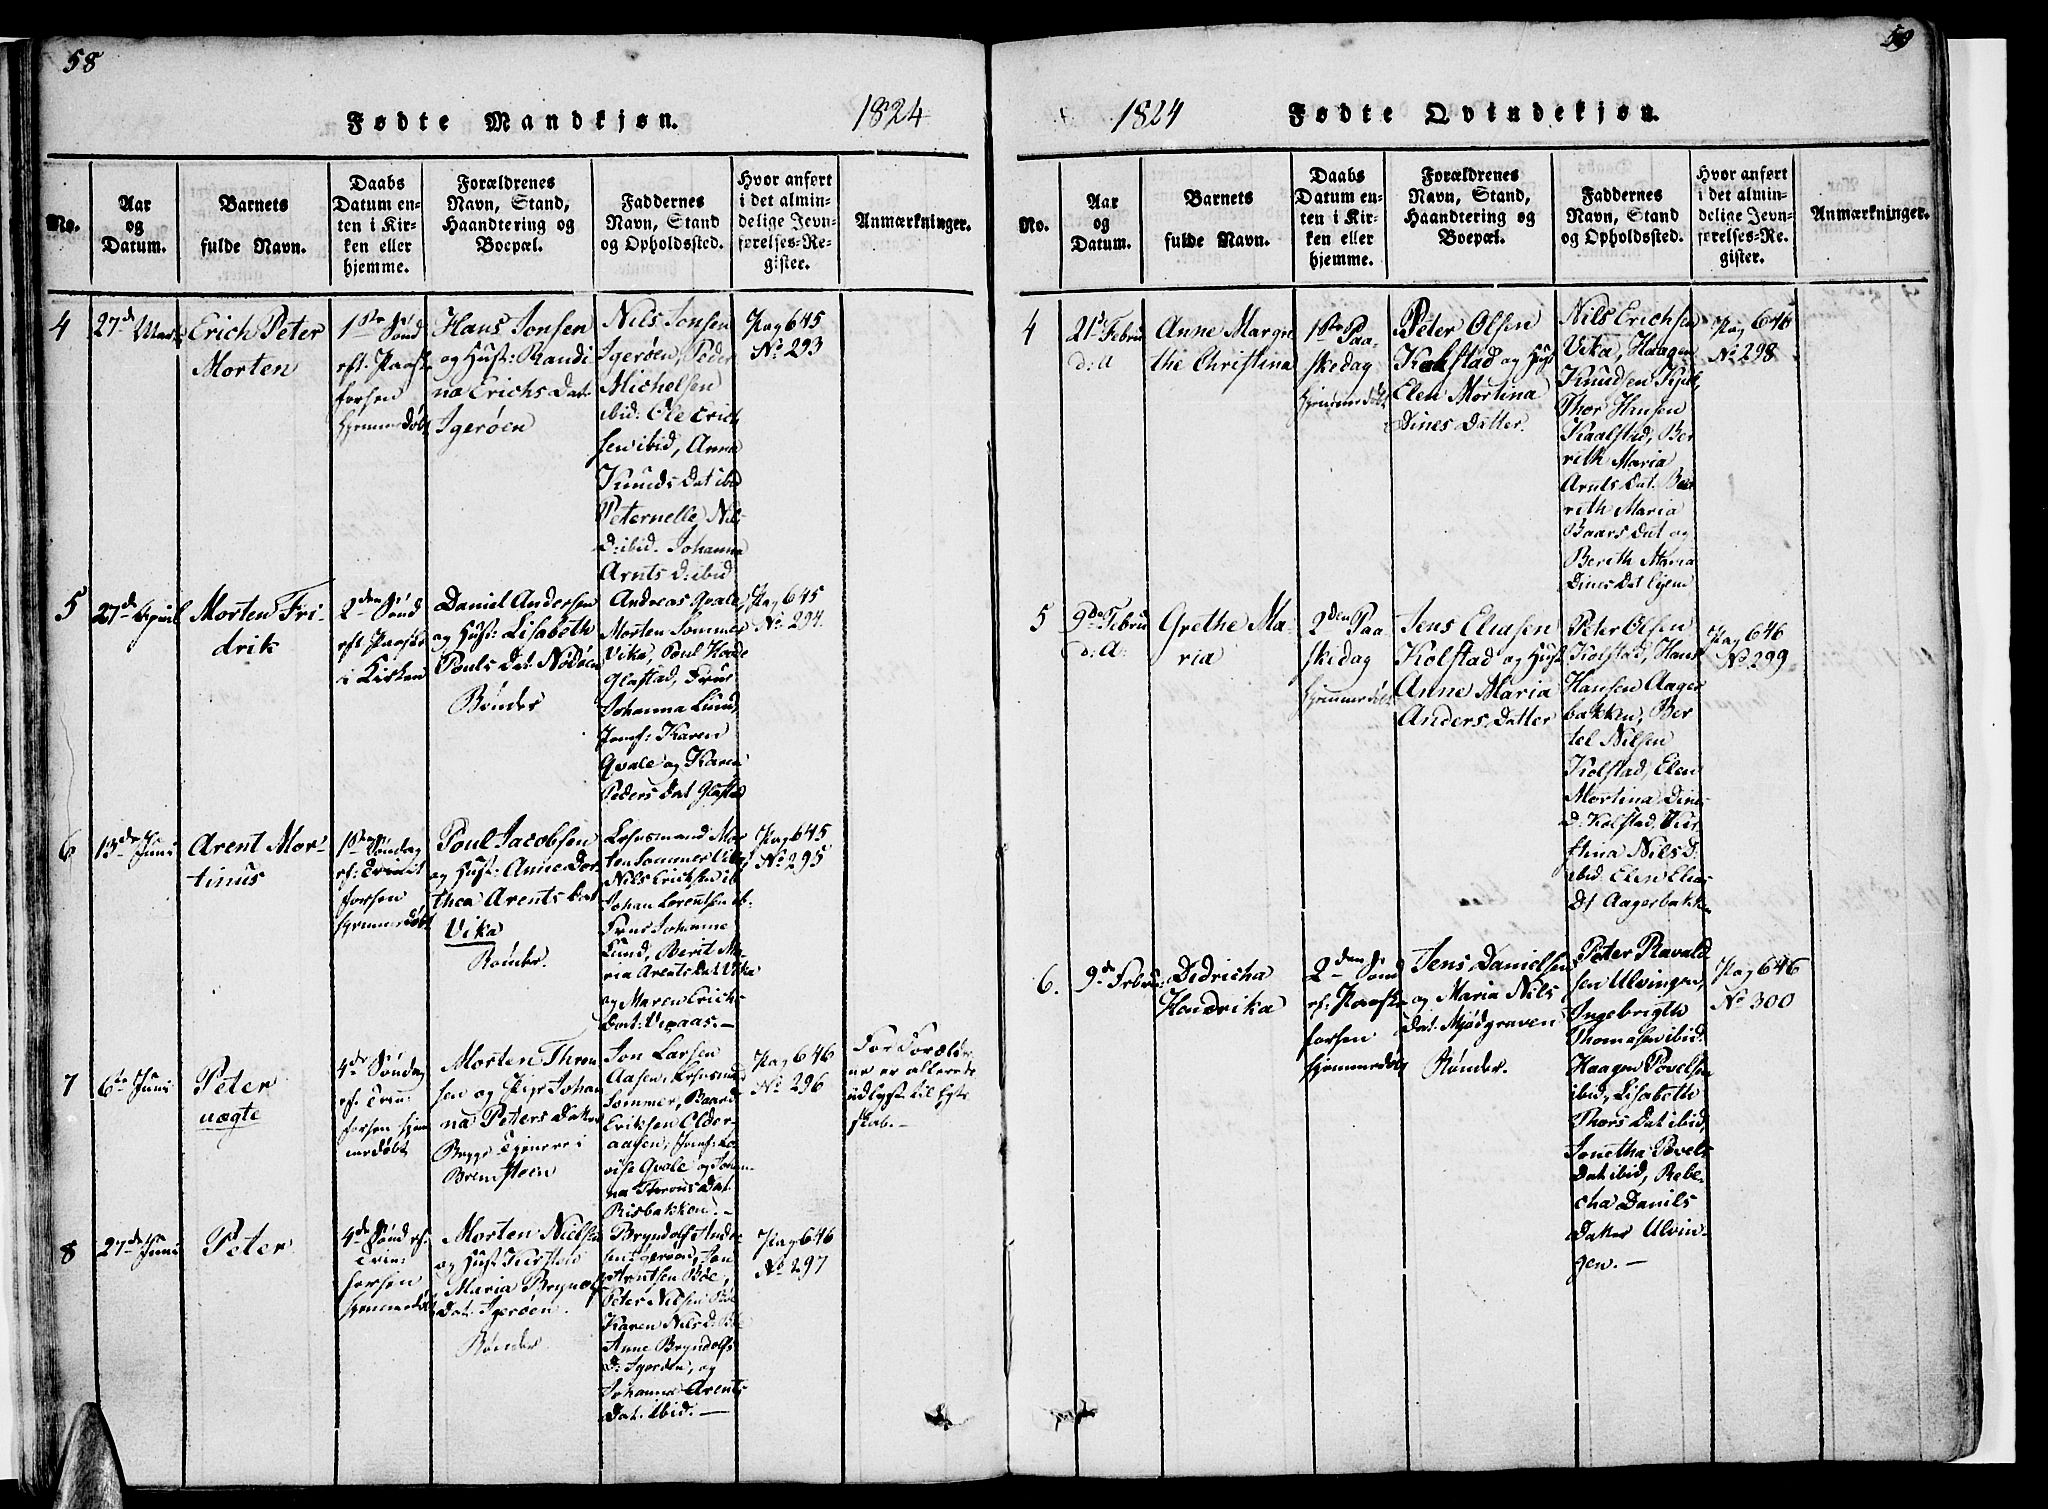 58
Fødte Mandkjøn.
1824
No.
Aar
og
Datum.
Barnets
fulde Navn.
Daabs
Datum en-
ten i Kir-
ken eller
hjemme.
Forældrenes
Navn, Stand,
Haandtering og
Boepæl.
Faddernes
Navn, Stand
og Opholdssted.
Hvor anført
i det almin-
delige Jevn-
førelses-Re-
gister.
Anmærkninger.
4
27de
Erich Peter
Morten
1ste Sønd
eft. Paaske
forhen
hjemmedøbt
Hans Jonsen
og Hust: Randi
na Erichs Dat
Igerøen
Nils Jonsen
Igerøen, Peder
Michelsen
ibid: Ole Erich
sen ibid, Anna
Knuds Dat ibid
Peternelle Nils
D: ibid. Johanna
Arnts D: ibid
Pag 645
No 293
5
27de April
Morten Fri-
drik
2den Sønd
eft Paaske
i Kirken
Daniel Andersen
og Hust: Lisabeth
Pouls Dat Nødøen
Bønder
Andreas Qvale,
Morten Sommer
Vika, Poul
Glastad, Frue
Johanna Lund,
Jomf: Karen
Qvale og Karen
Peders Dat Glastad
Pag 645
No 294
6
13de Juni
Arent Mor-
tinus
1ste Søndag
ef: Trinit
forhen
hjemmedøbt
Poul Jacobsen
og Hust: Anne Dor-
thea Arents Dat
Vika
Bønder.
Lensmand Mor
ten Sommer Vika
Nils Erichsen ib
Johan Lorentsen ib:
Frue Johanne
Lund, Berit Ma-
ria Arents Dat Vika
og Maren Erichs
Dat: Vigaas.—
Pag 645
No 295
7
6te Juni
Peter
uægte
4de Søndag
ef: Trini
forhen hjem
medøbt
Morten Thron
sen og Pige Johan
na Peters Datter
Begge Tjenere i
Brendsteen
Jon Larsen
Aasen, Lensmand
Sommer, Baard
Eriksen Older-
aasen, Jomf: Lo-
vise Qvale og Johan-
na Throns Dat
Risbakken.—
Pag 646
No 296
For Forældre
ne er allerede
udlyst til Egte
skab.—
8
27de Juni
Peter
4de Sønd ef:
Trin:
forhen
hjemmedøbt
Morten Nielsen
og Hust Kirsten
Maria Bryndolfs
Dat: Igerøen.
Bønder
Bryndolf Ander
sen Igerøen, Jon
Arntsen Bøe,
Peter Nilsen Bøe
Karen Nils D: Bøe
Anne Bryndolfs
D: Igerøen, og
Johanna Arents
Dat. ibid.—
Pag 646
No 297
59
1824
Fødte Qvindekjøn.
No.
Aar
og
Datum.
Barnets
fulde Navn.
Daabs
Datum en-
ten i Kir-
ken eller
hjemme.
Forældrenes
Navn, Stand,
Haandtering og
Boepæl.
Faddernes
Navn, Stand
og Opholdssted.
Hvor anført
i det almin-
delige Jevn-
førelses-Re-
gister.
Anmærkninger.
4
21de Febru
d: A
Anne Margre
the Christina
1ste Paa-
skedag
hjemmedøbt
Peter Olsen
Kolstad og Hust
Elen Mortina
Dines Datter.
Nils Erichsen
Vika, Haagen
Knudsen
Thor Hansen
Kaalstad, Ber
rith Maria
Arnts Dat. Ber
rith Maria
Baars Dat og
Berith Maria
Dines Dat
Pag 646
No 298
5
9de Febru
d: A:
Grethe Ma-
ria
2den Paa-
skedag
hjemmedøbt
Jens Eliasen
Kolstad og Hust
Anne Maria
Anders Datter
Peter Olsen
Kolstad, Hans
Hansen Aager
bakken, Ber
tel Nilsen
Kolstad, Elen
Mortina Dines
D: Kolstad, Kir
stina Nils D:
ibid: Elen Elias
Dt Aagerbakken
Pag 646
No 299
6.
9de Febru
Didricha
Hendrika
2den Sønd
ef: Paaske
forhen
hjemmedøbt
Jens Danielsen
og Maria Nils
Dat: Mjødgraven
Bønder.
Peter Ravald
sen Ulvingen,
Ingebrigth
Thomasen ibid:
Haagen Povelsen
ibid, Lisabeth
Thors Dat ibid,
Jonetha Povels
Dat ibid, Rebe-
cha Danils
Datter Ulvin-
gen.—
Pag 646
No 300